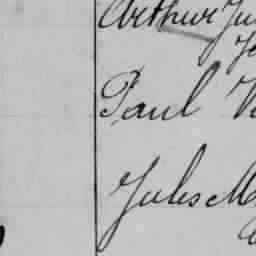 Arthur Ju
Paul V
Jules M